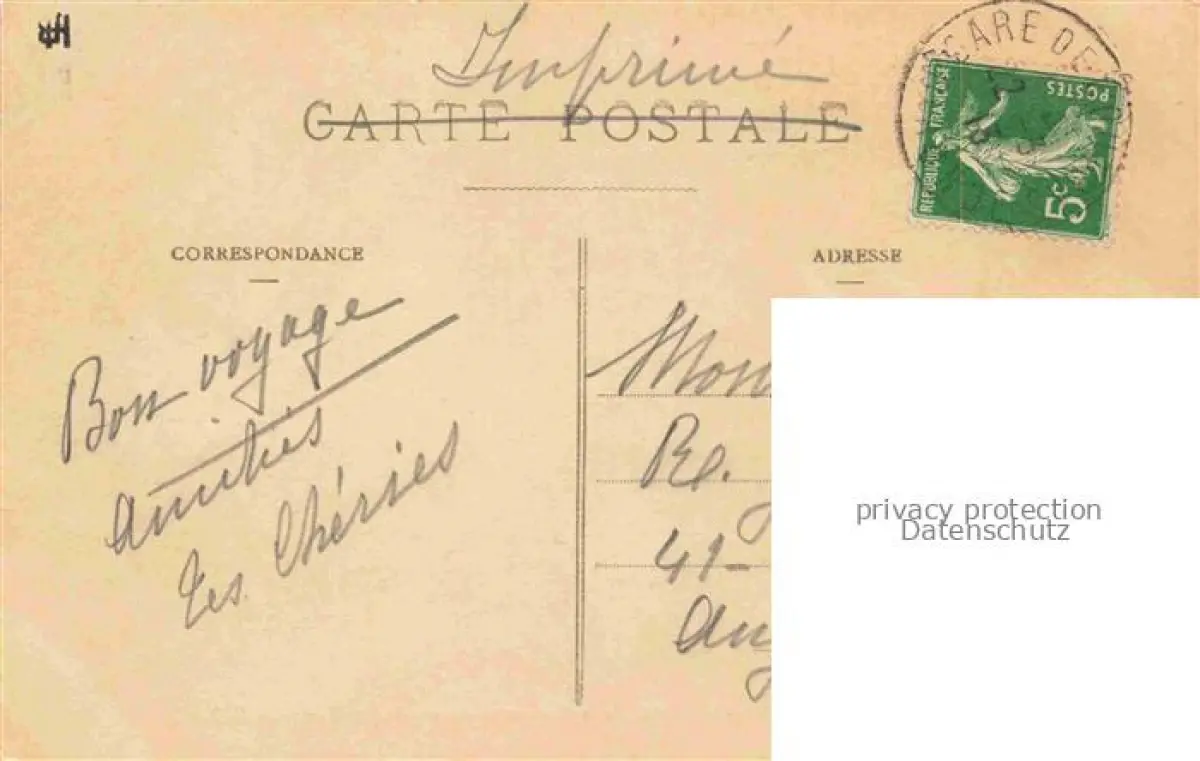 Imprimé
CARTE POSTALE
GARE DE
RÉPUBLIQUE FRANÇAISE
POSTES
5c
CORRESPONDANCE
ADRESSE
Bon voyage
Amitiés
Tes Chéries
Mon
Re.
41-
Ang
privacy protection
Datenschutz